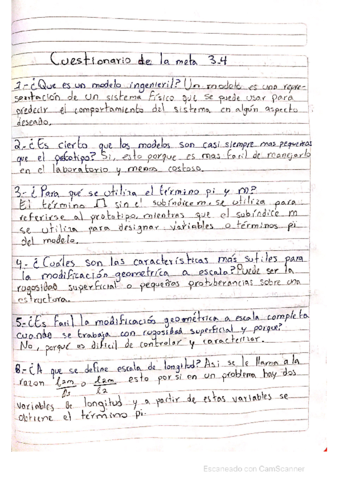 Cuestionario de la meta 3.4
1.-¿Que es un modelo ingenieril? Un modelo es una repre-
sentación de un sistema físico que se puede usar para
predecir el comportamiento del sistema en algún aspecto
deseado.
2.-¿Es cierto que los modelos son casi siempre mas pequeños
que el prototipo? Si, esto porque es mas facil de manejarlo
en el laboratorio y menos costoso.
3.-¿Para qué se utiliza el término pi y m?
El término Π sin el subíndice m, se utiliza para
referirse al prototipo, mientras que el subíndice m
se utiliza para designar variables o términos pi
del modelo.
4.-¿Cuáles son las características más sutiles para
la modificación geometrica a escala? Puede ser la
rugosidad superficial o pequeños protuberancias sobre una
estructura.
5.-¿Es facil la modificación geométrica a escala completa
cuando se trabaja con rugosidad superficial y porque?
No, porque es dificil de controlar y caracterizar.
6.-¿A que se define escala de longitud? Asi se le llama a la
razon o l2m/l2 esto por si en un problema hay dos
variables de longitud y a partir de estas variables se
obtiene el término pi.
Escaneado con CamScanner